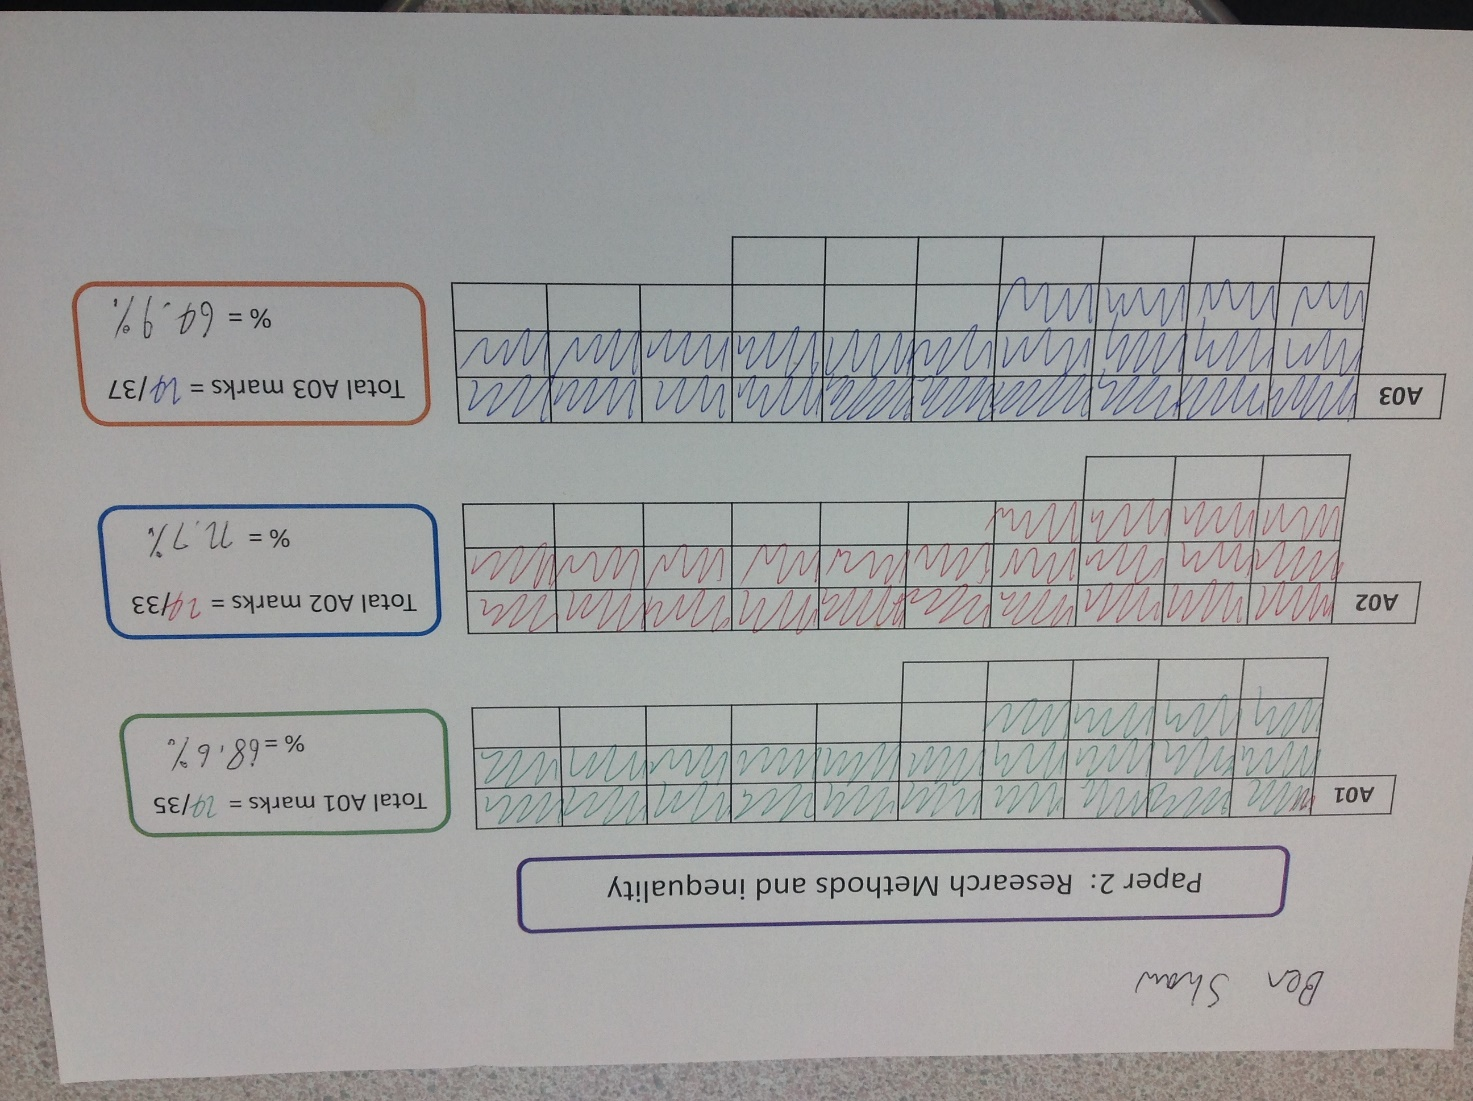 Ben Shaw
Paper 2: Research Methods and inequality
A01
Total A01 marks = 24/35
% = 68.6%
A02
Total A02 marks = 24/33
% = 72.7%
A03
Total A03 marks = 24/37
% = 64.9%